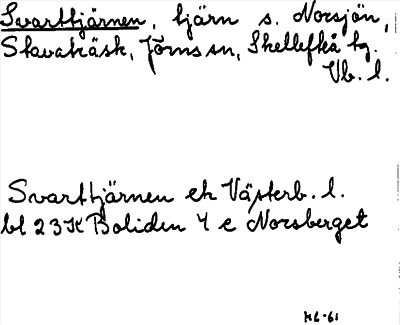 Svarttjärnen, tjärn s. Norsjön,
Slavaträsk, Jörns sn, Skellefteå tg.
Vb. l.
Svarttjärnen ek Västerb. l.
bl 23K Boliden 4 e Norsberget